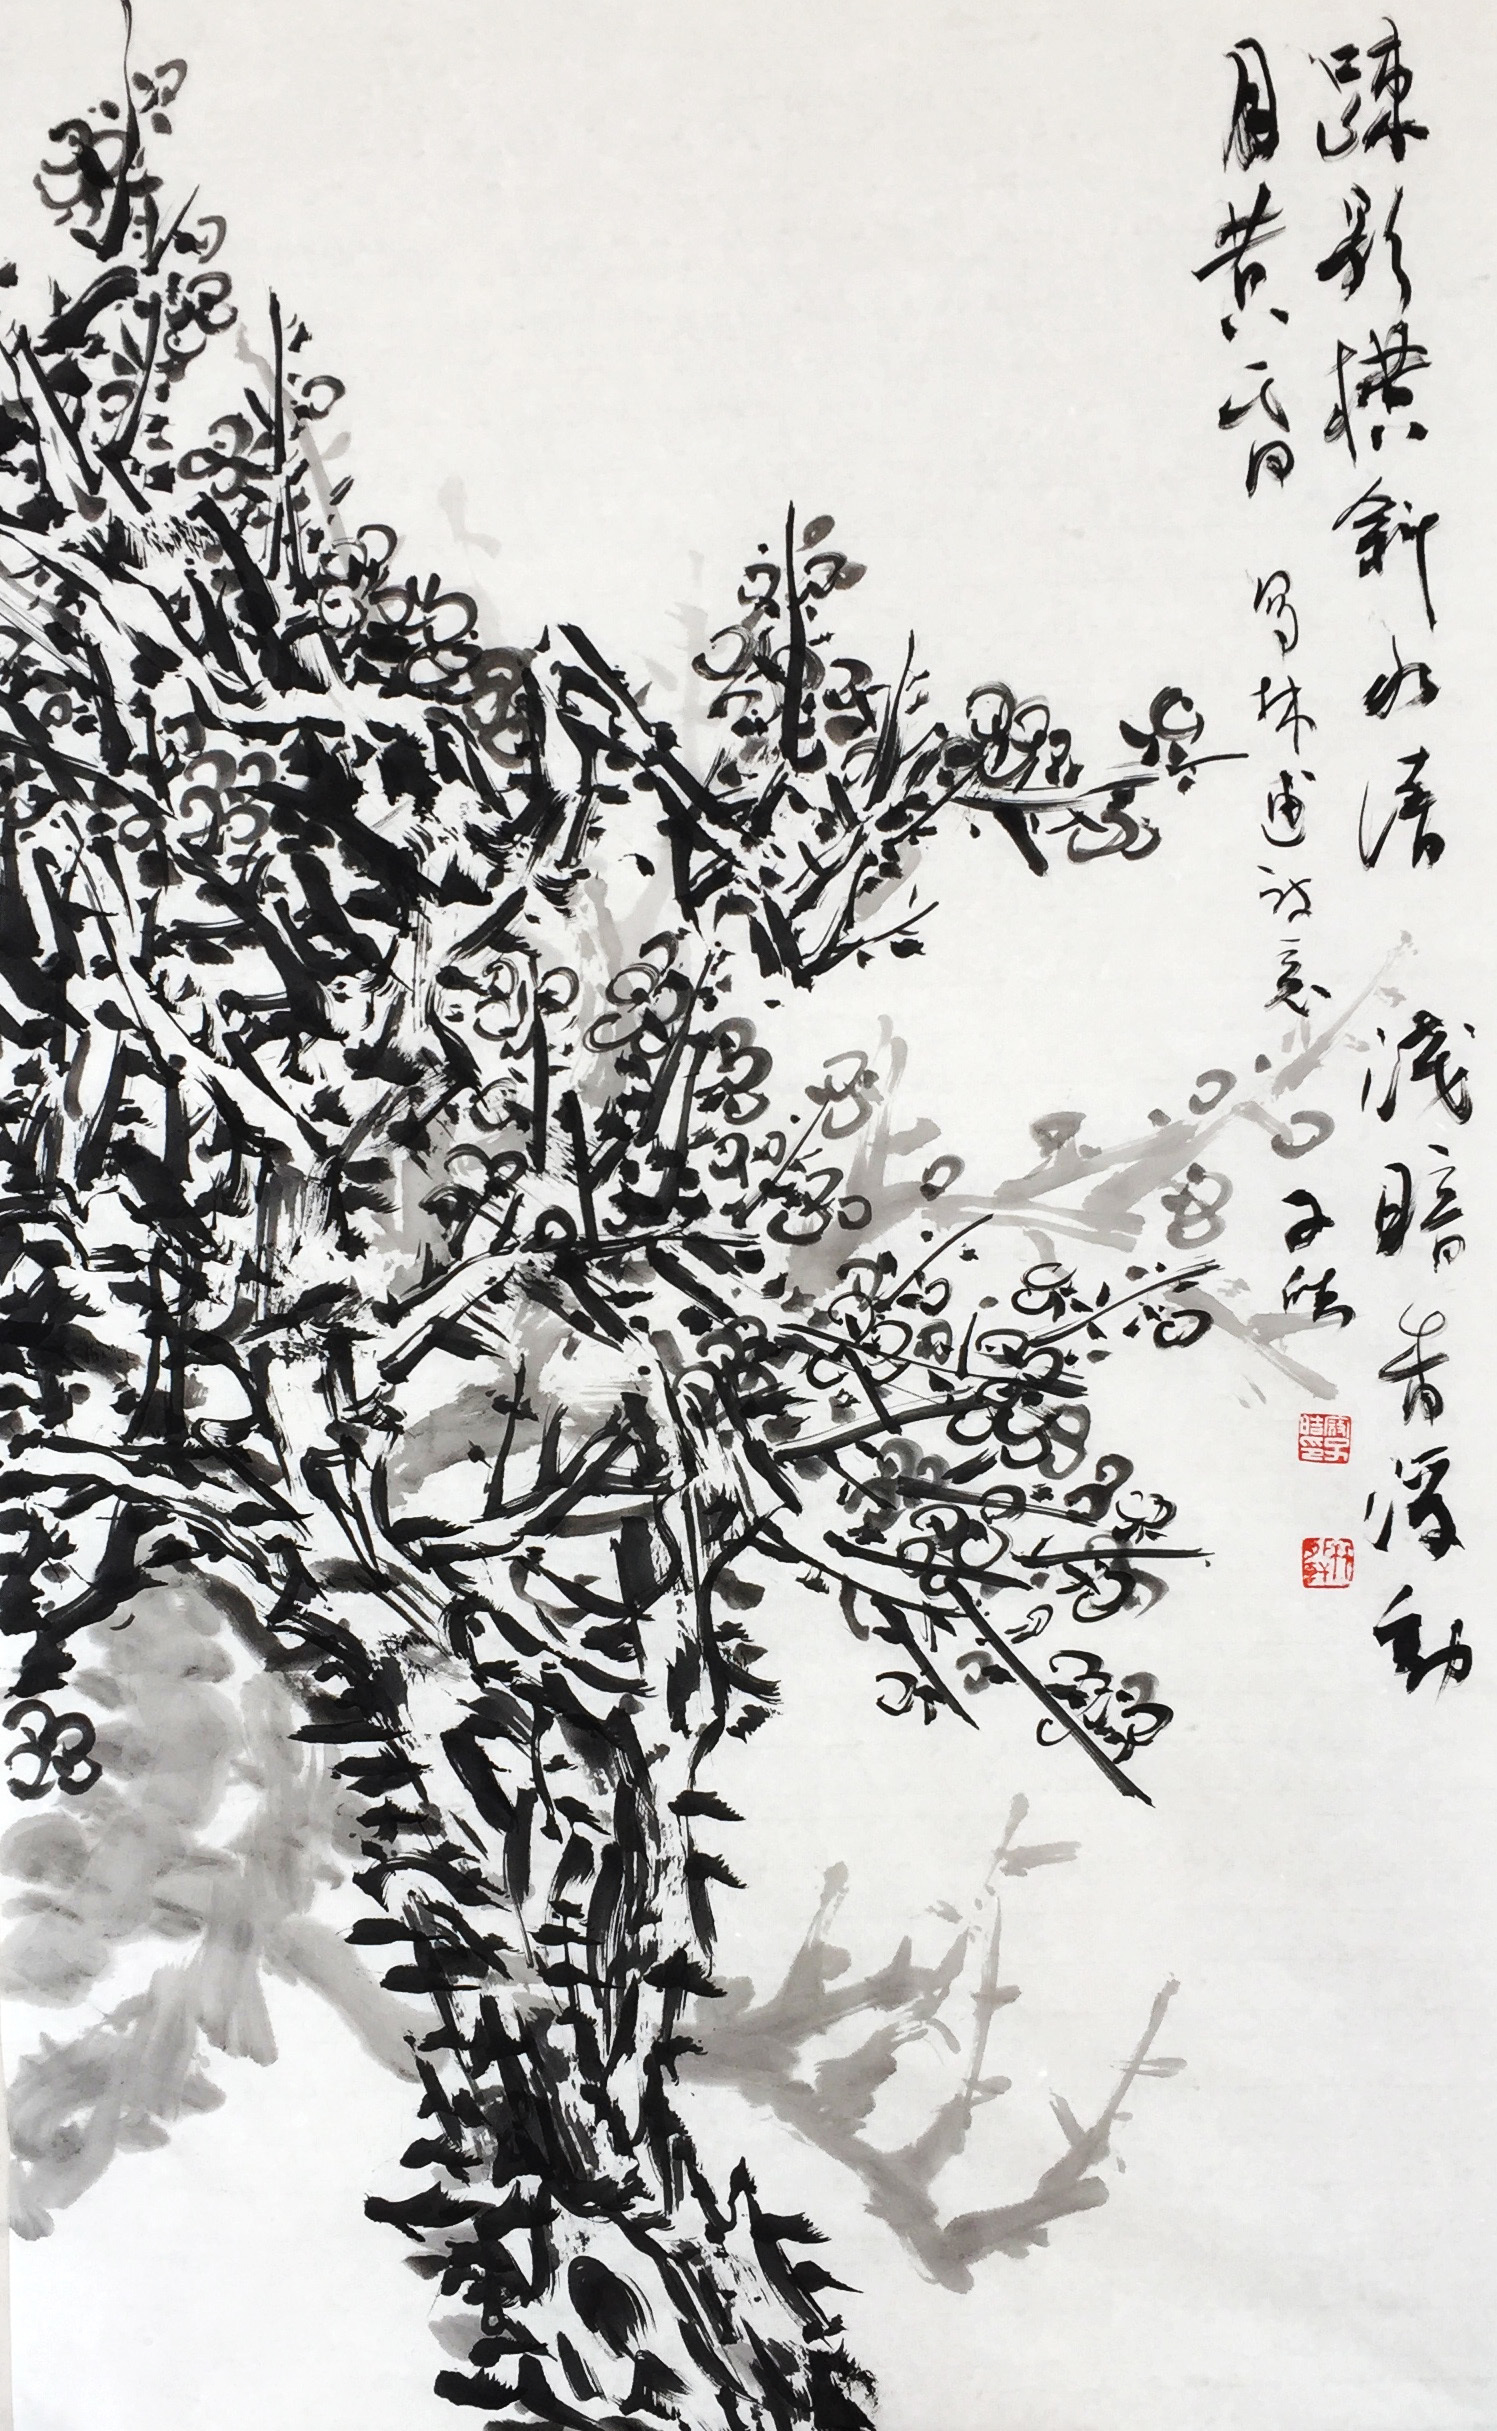 疎影横斜水清淺暗香浮動
月黄昏 写林逋诗意 子皓